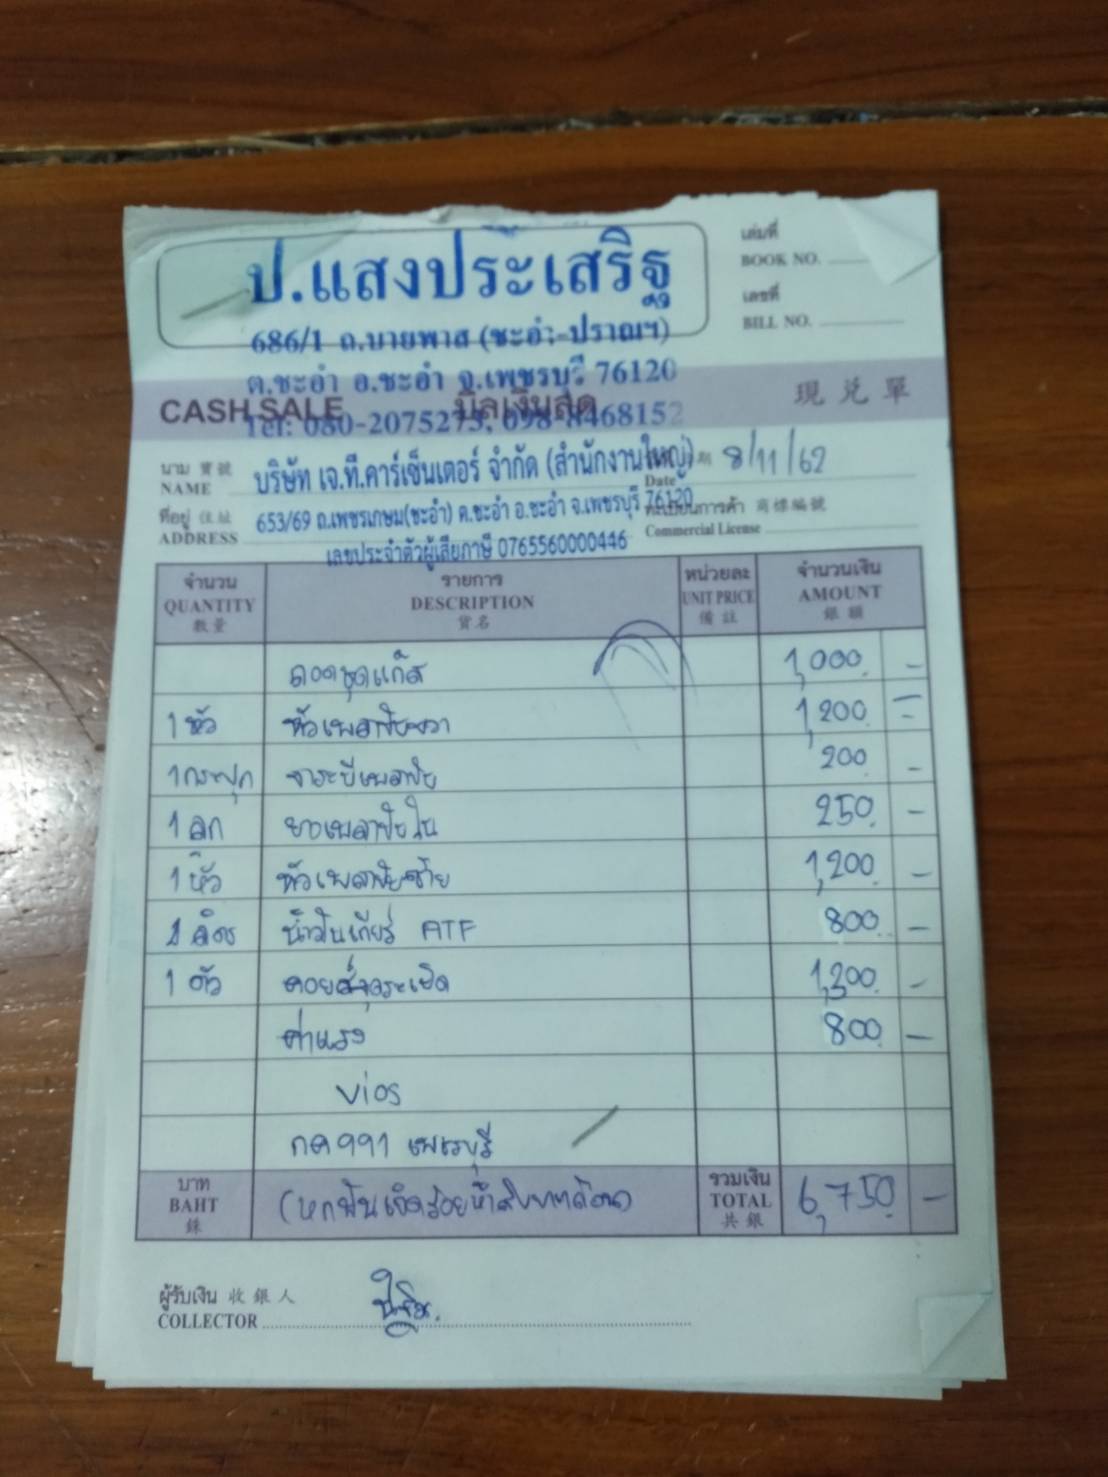 ป.แสงประเสริฐ
686/1 ถ.บายพาส (ชะอำ-ปราณฯ)
ต.ชะอำ อ.ชะอำ จ.เพชรบุรี 76120
Tel: 080-2075273, 098-8468152
เล่มที่
BOOK NO.
เลขที่
BILL NO.
CASH SALE บิลเงินสด 現兌單
นาม 寶號
NAME
บริษัท เจ.ที.คาร์เซ็นเตอร์ จำกัด (สำนักงานใหญ่)
Date 8/11/62
ที่อยู่ 住址
ADDRESS
653/69 ถ.เพชรเกษม(ชะอำ) ต.ชะอำ อ.ชะอำ จ.เพชรบุรี 76120
ทะเบียนการค้า 商標編號
Commercial License
เลขประจำตัวผู้เสียภาษี 0765560000446
จำนวน รายการ หน่วยละ จำนวนเงิน
QUANTITY DESCRIPTION UNIT PRICE AMOUNT
數量 貨名 備註 銀額
ถอดชุดแก๊ส 1,000 -
1 หัว หัวเพลาขับขวา 1,200 -
1 กระปุก จาระบีเพลาขับ 200 -
1 ลูก ยางเพลาขับใน 250 -
1 หัว หัวเพลาขับซ้าย 1,200 -
ลิตร น้ำมันเกียร์ ATF 800 -
1 ตัว คอยล์จุดระเบิด 1,300 -
ค่าแรง 800 -
Vios
กค 991 เพชรบุรี
บาท
BAHT
銖
(หกพันเจ็ดร้อยห้าสิบบาทถ้วน)
รวมเงิน
TOTAL
共銀
6,750 -
ผู้รับเงิน 收銀人
COLLECTOR